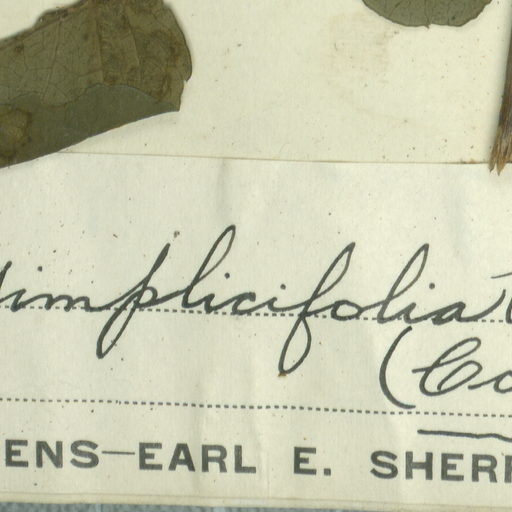 simplicifolia
(Co
ENS—EARL E. SHERF